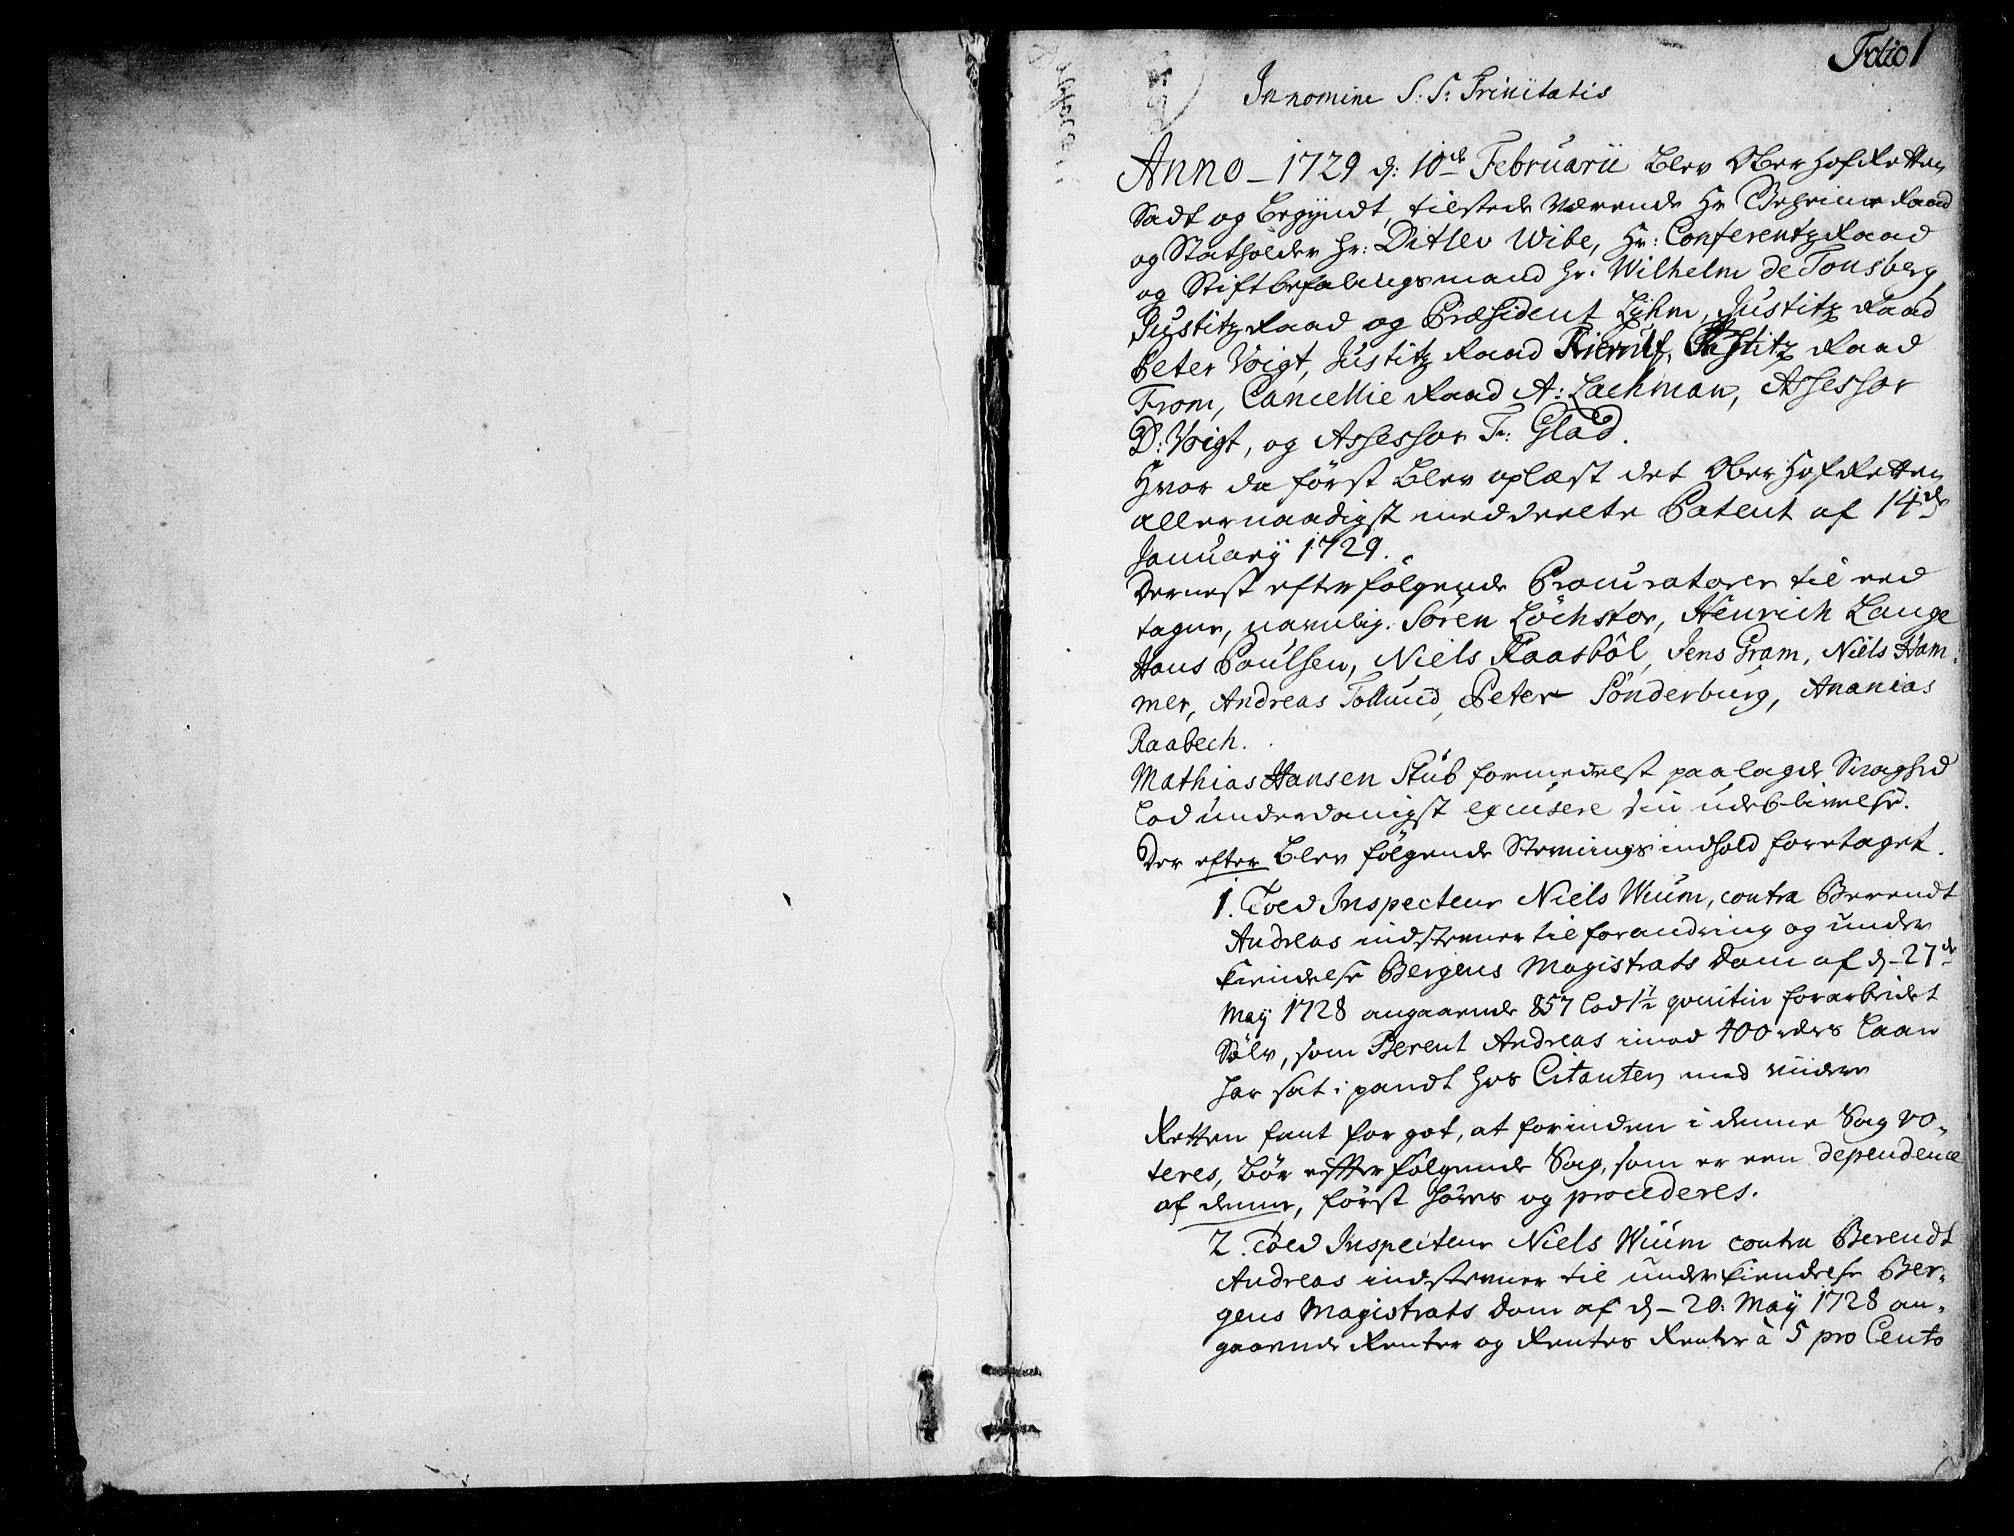 Folio 1
In nomine S: S: Trinitatis
Anno 1729 d: 10de Februarii blev Ober Hof Retten
Sadt og begyndt, tilstede Værende Hr Geheime Raad
og Statholder Hr: Ditlev Wibe, Hr: Conferentz Raad
og Stiftbefalingsmand Hr. Wilhelm de Tonsberg,
Justitz Raad og Præsident Lyhm, Justitz Raad
Peter Voigt, Justitz Raad Kierulf, Justitz Raad
From, Cancellie Raad A: Lachman, Assessor
D: Voigt, og Assessor Fr: Glad.
Hvor da først blev oplæst det Ober Hof Retten
allernaadigst meddeelte Patent af 14de
January 1729.
Dernest efterfølgende Procuratorer til eed
tagne, namlig: Søren Löchstor, Henrich Lange
Hans Poulsen, Niels Raasböl, Jens Gram, Niels Ham-
mer, Andreas Tollund, Peter Sönderburg, Ananias
Raabech.
Mathias Hansen Stub formedelst paalagde Svaghed
lod underdanigst excusere sin udeblivelse.
Der efter blev følgende Stevnings indhold foretaget.
1. Toed Inspecteur Niels Wium, contra Berendt
Andreas indstevner til forandring og under
kiendelse Bergens Magistrats Dom af d- 27de
May 1728 angaaende 857 lod 1½ qvintin forarbeidet
Sølv, som Berent Andreas imod 400 rdrs Laan
har sat i pandt hos Citanten med viidere
Retten fant for got, at forinden i denne Sag vo-
teres, bør effterfølgende Sag, som er een dependence
af denne, først høres og procederes.
2. Toed Inspecteur Niels Wium contra Berendt
Andreas indstevner til underkiendelse Ber-
gens Magistrats Dom af d- 20. May 1728 an-
gaaende Renter og Rentes Renter à 5 pro Cento